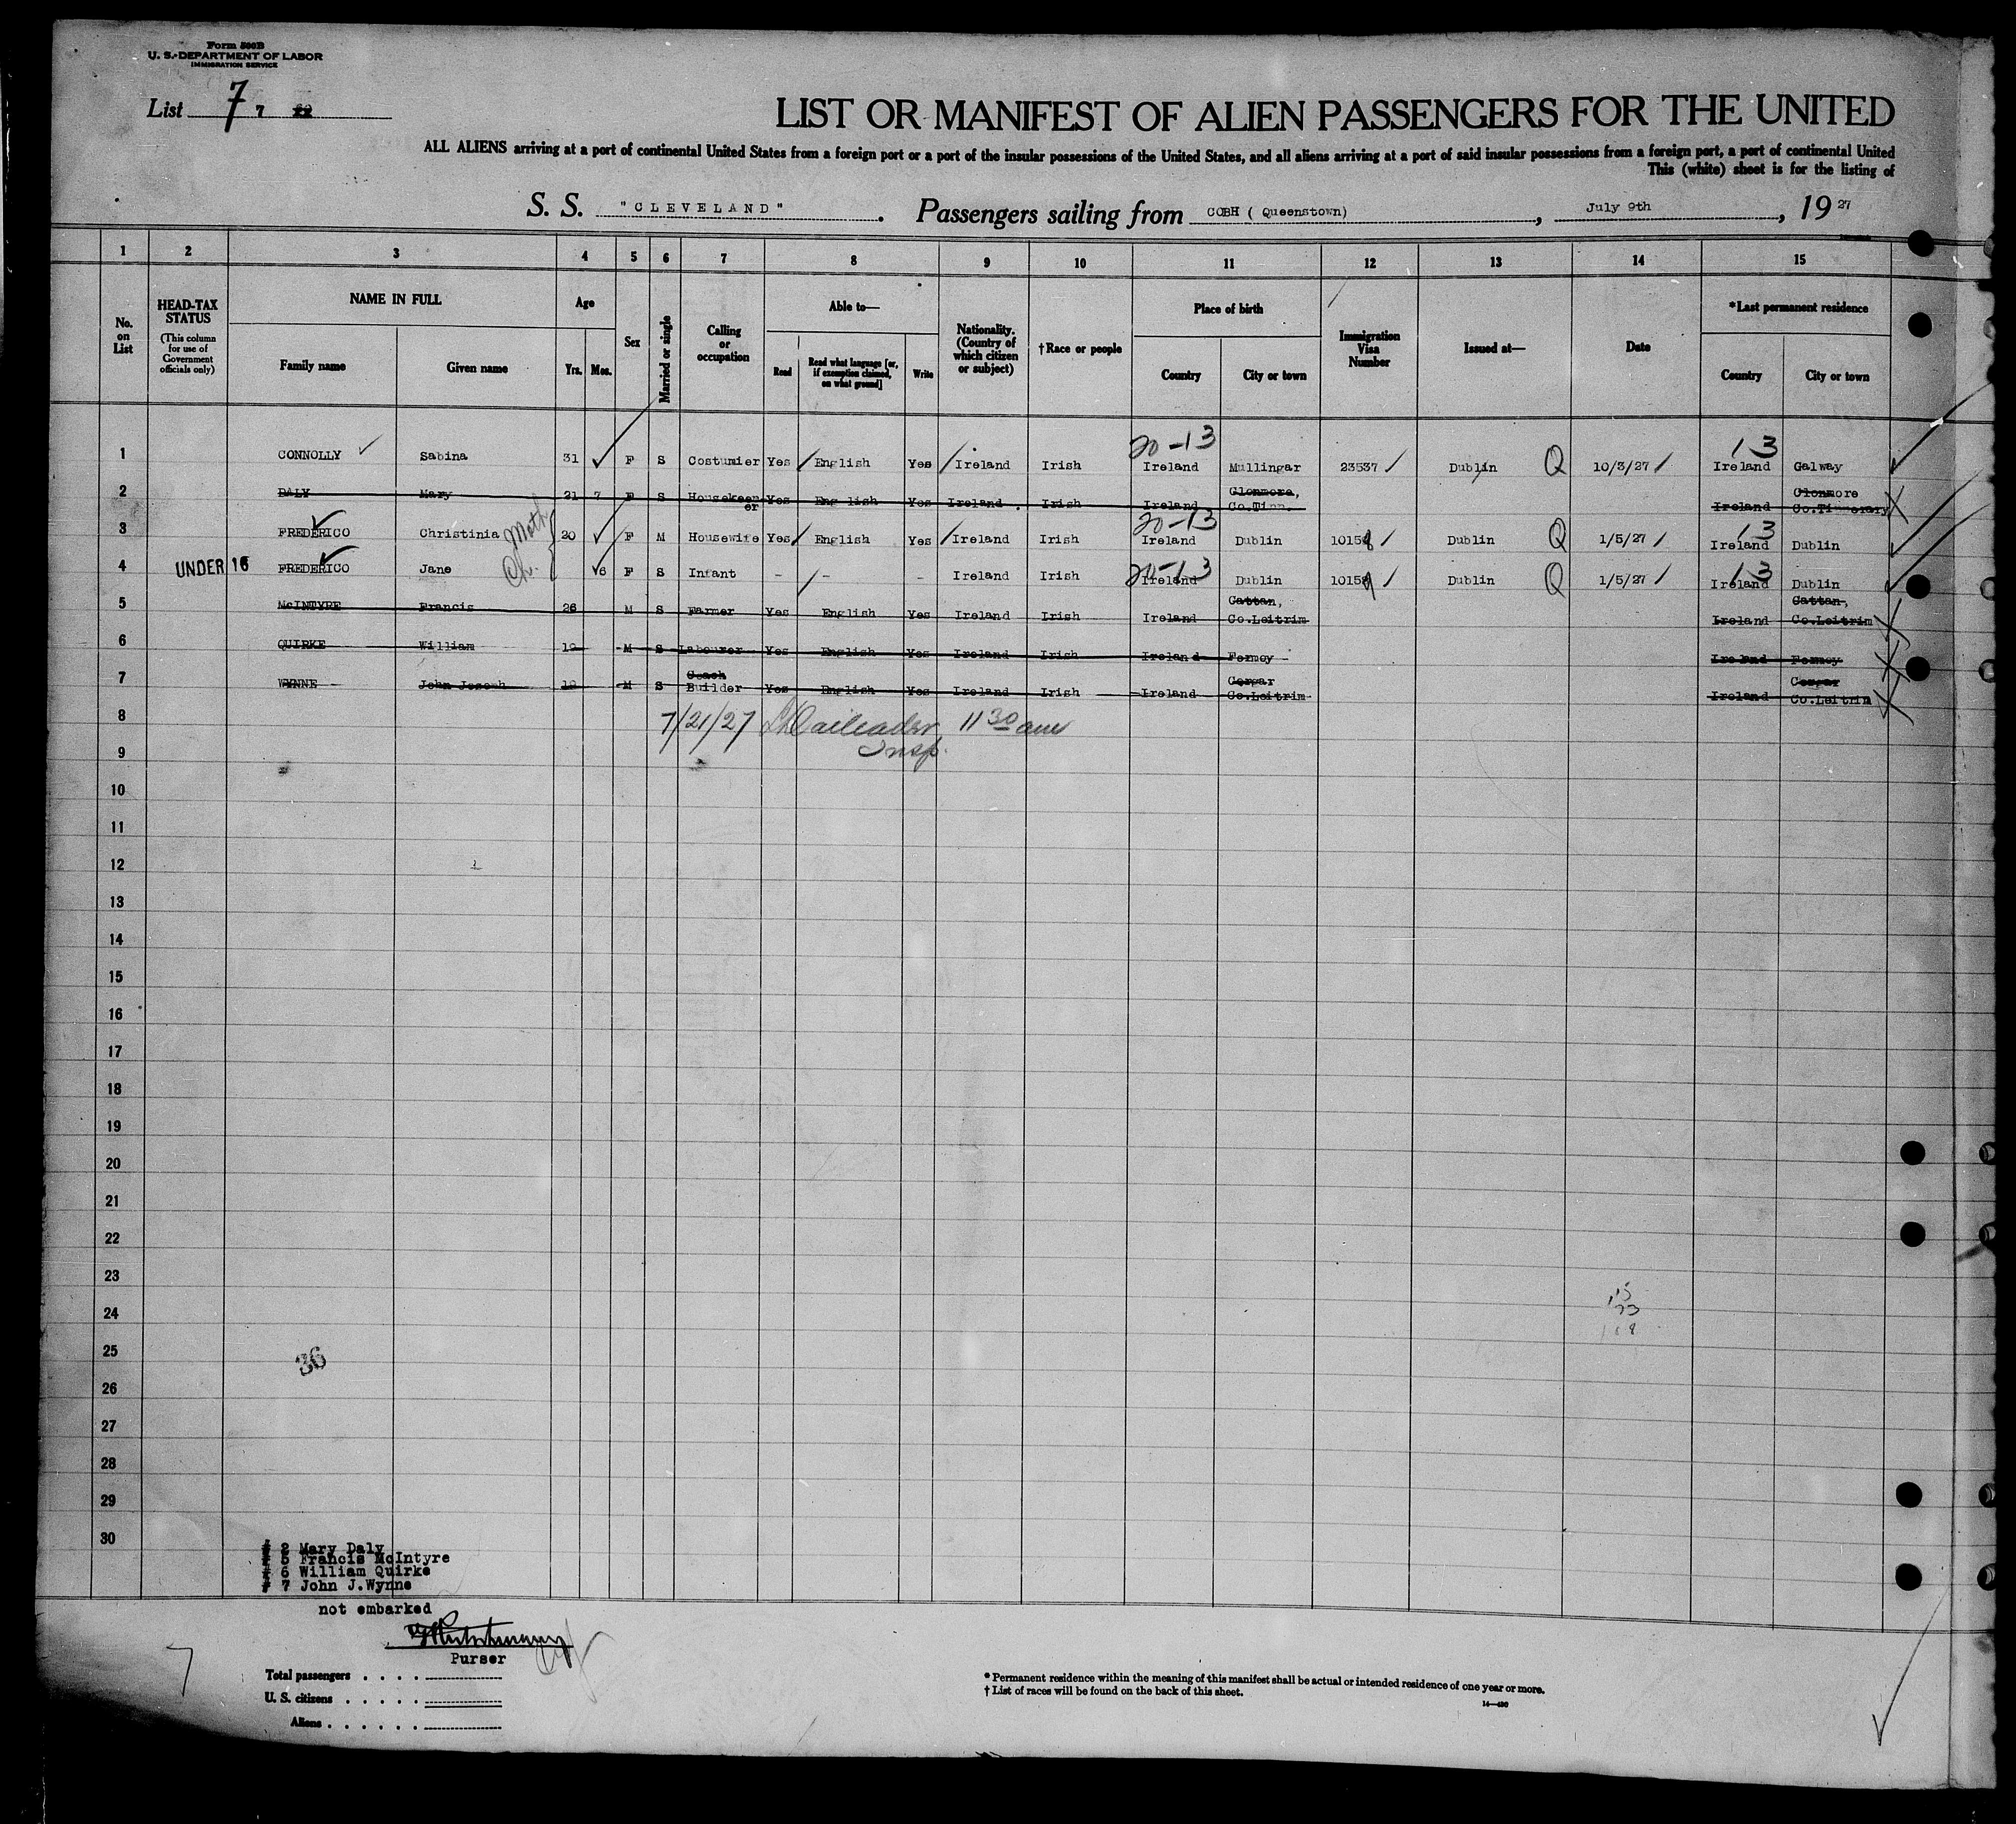 Form 500B
U. S. DEPARTMENT OF LABOR
IMMIGRATION SERVICE
List 7 7
LIST OR MANIFEST OF ALIEN PASSENGERS FOR THE UNITED
ALL ALIENS arriving at a port of continental United States from a foreign port or a port of the insular possessions of the United States, and all aliens arriving at a port of said insular possessions from a foreign port, a port of continental United
This (white) sheet is for the listing of
S. S. "CLEVELAND". Passengers sailing from COBH ( Queenstown), July 9th, 19 27
1 2 3 4 5 6 7 8 9 10 11 12 13 14 15
No. on List
HEAD-TAX STATUS
(This column for use of Government officials only)
NAME IN FULL
Family name
Given name
Age
Yrs. Mos.
Sex
Married or single
Calling or occupation
Able to—
Read
Read what language [or, if exemption claimed, on what ground]
Write
Nationality. (Country of which citizen or subject)
†Race or people
Place of birth
Country
City or town
Immigration Visa Number
Issued at—
Date
*Last permanent residence
Country
City or town
20-13 13
1 CONNOLLY Sabina 31 F S Costumier Yes English Yes Ireland Irish Ireland Mullingar 23537 Dublin Q 10/3/27 Ireland Galway
2 DALY Mary 21 7 F S Housekeeper Yes English Yes Ireland Irish Ireland Clonmore, Co.Tipp. Ireland Clonmore Co.Tipperary
20-13 13
3 FREDERICO Christinia Moth 20 F M Housewife Yes English Yes Ireland Irish Ireland Dublin 10158 Dublin Q 1/5/27 Ireland Dublin
20-13 13
4 UNDER 16 FREDERICO Jane Ch. 6 F S Infant - - - Ireland Irish Ireland Dublin 10159 Dublin Q 1/5/27 Ireland Dublin
5 McINTYRE Francis 26 M S Farmer Yes English Yes Ireland Irish Ireland Gattan, Co.Leitrim Ireland Gattan, Co.Leitrim
6 QUIRKE William 19 M S Labourer Yes English Yes Ireland Irish Ireland Fermoy Ireland Fermoy
7 WYNNE John Joseph 19 M S Coach Builder Yes English Yes Ireland Irish Ireland Co.Leitrim Ireland Co.Leitrim
8 7/21/27 11 30 am
Insp.
9
10
11
12
13
14
15
16
17
18
19
20
21
22
23
24
25
36
26
27
28
29
30
2 Mary Daly
5 Francis McIntyre
6 William Quirke
7 John J.Wynne
not embarked
Purser
Total passengers . . . .
U. S. citizens . . . . .
Aliens . . . . . .
* Permanent residence within the meaning of this manifest shall be actual or intended residence of one year or more.
† List of races will be found on the back of this sheet.